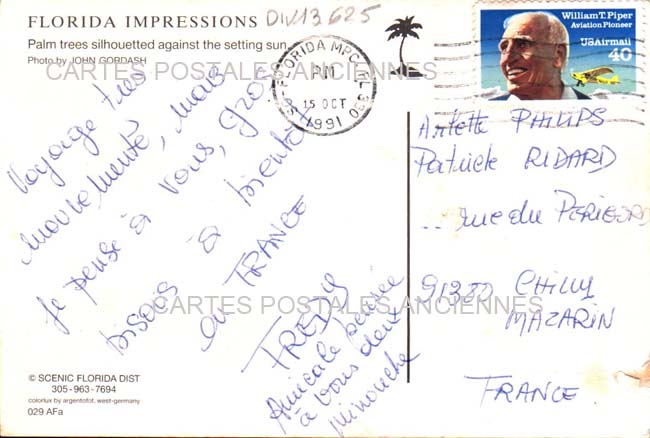 FLORIDA IMPRESSIONS
DIV13625
Palm trees silhouetted against the setting sun.
Photo by JOHN GORDASH
CARTES POSTALES ANCIENNES
S. FLORIDA MPC, FL 330
PM
15 OCT
1991
William T. Piper
Aviation Pioneer
USAirmail
40
Voyage très
mouvementé, mais
je pense à vous, gros
bisous à bientôt
en FRANCE
FREDDY
Amicale pensée
à vous deux
minouche
Arlette PHILIPS
Patrick RIDARD
.. rue du PERIGORD
91380 CHILLY
MAZARIN
FRANCE
CARTES POSTALES ANCIENNES
© SCENIC FLORIDA DIST
305-963-7694
colorlux by argentofot, west-germany
029 AFa